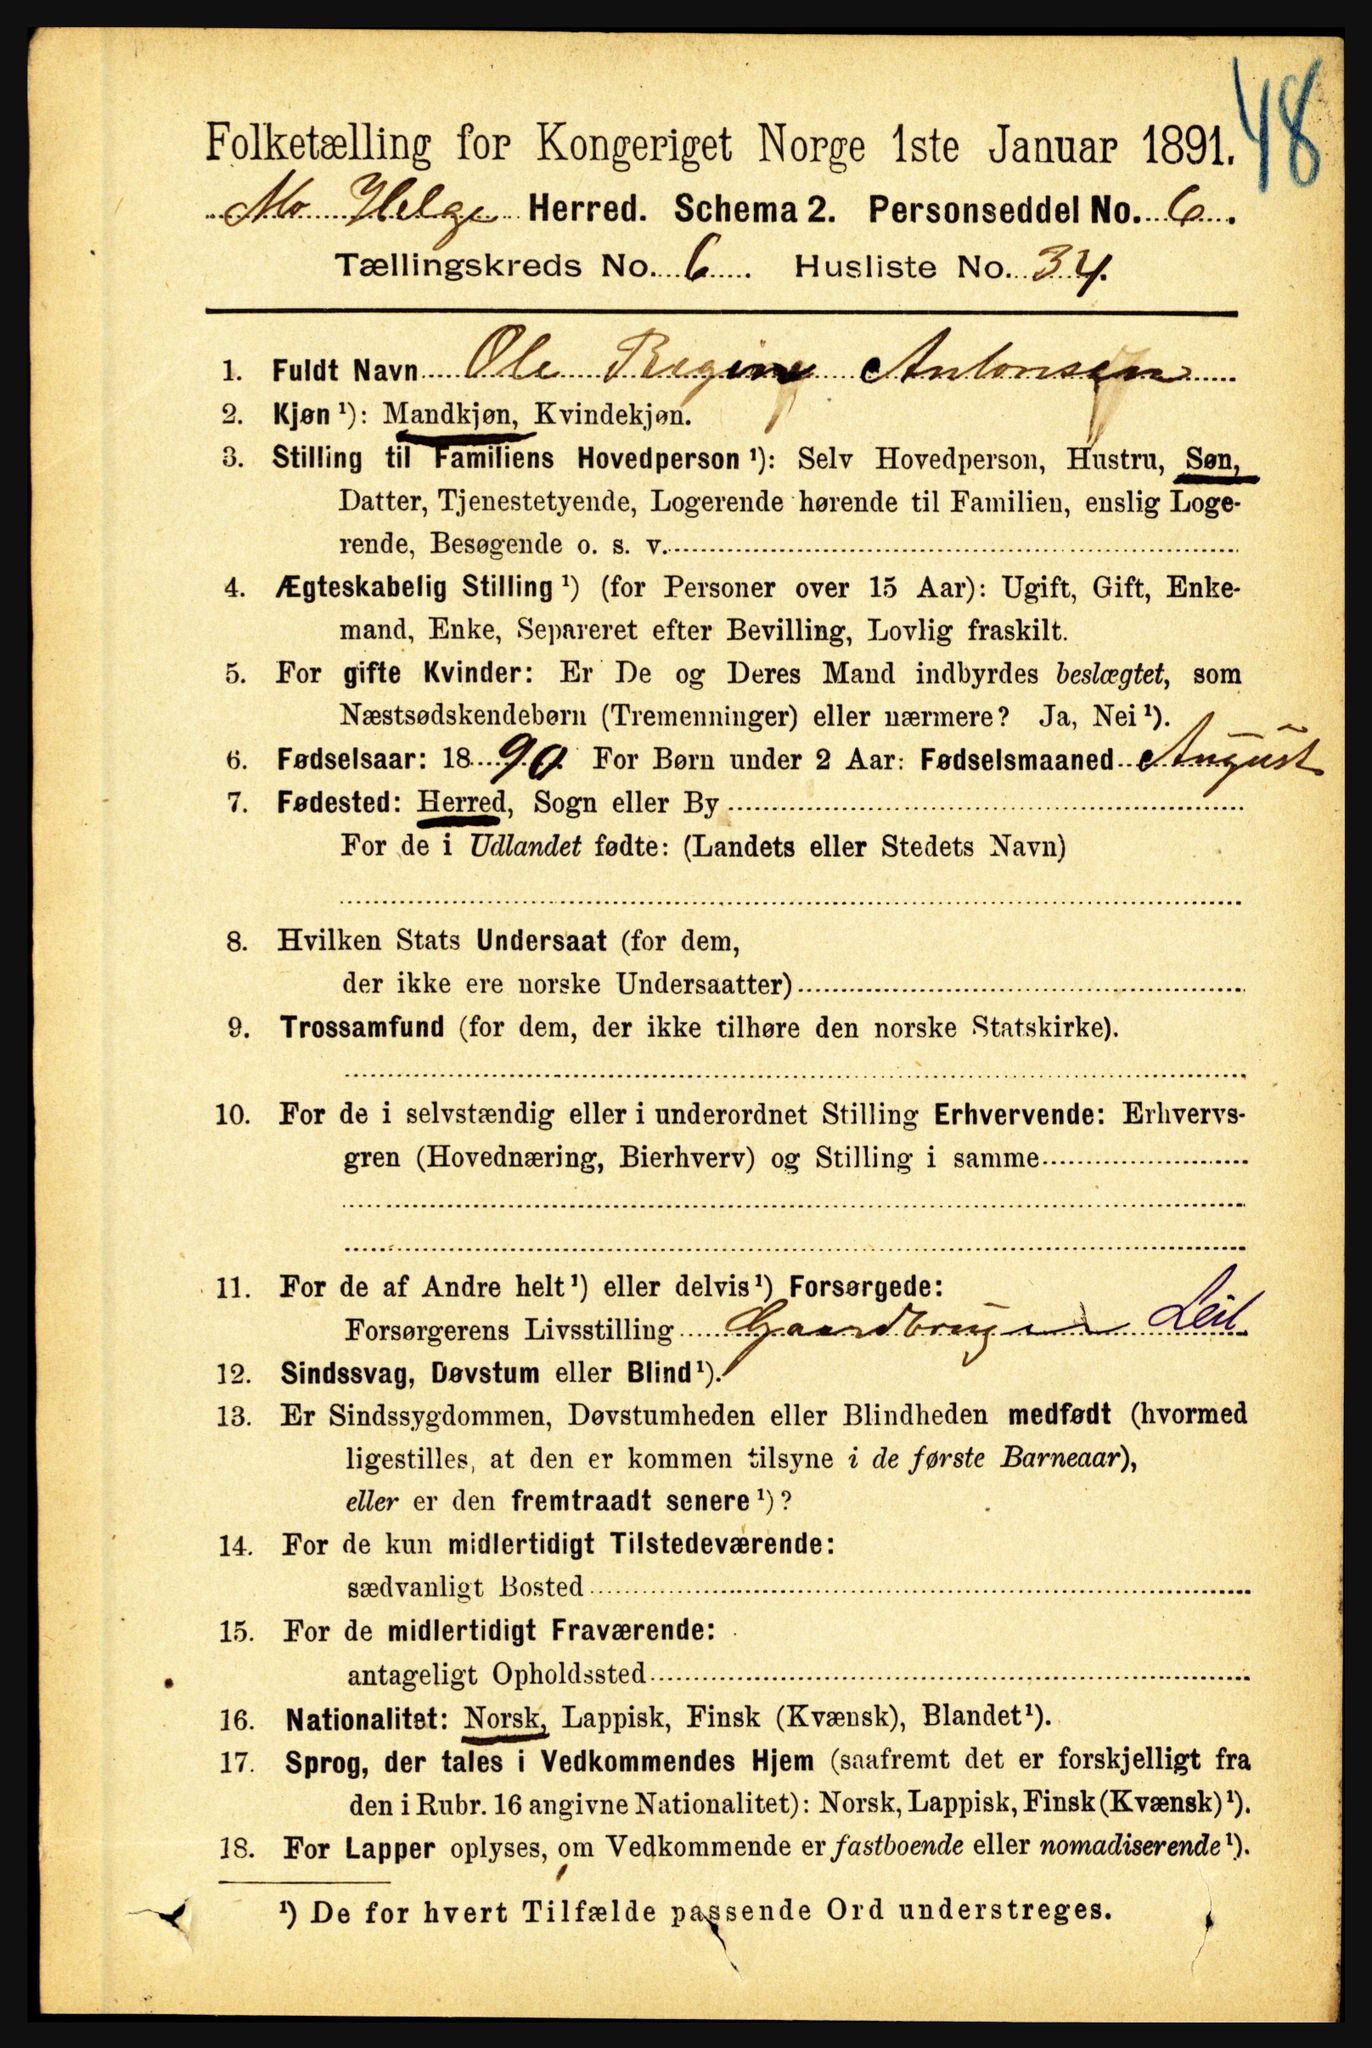 48
Folketælling for Kongeriget Norge 1ste Januar 1891.
Mo Helge Herred. Schema 2. Personseddel No. 6.
Tællingskreds No. 6 Husliste No. 34.
1. Fuldt Navn Ole Antonsen
2. Kjøn ¹): Mandkjøn, Kvindekjøn.
3. Stilling til Familiens Hovedperson ¹): Selv Hovedperson, Hustru, Søn,
Datter, Tjenestetyende, Logerende hørende til Familien, enslig Loge-
rende, Besøgende o. s. v.
4. Ægteskabelig Stilling ¹) (for Personer over 15 Aar): Ugift, Gift, Enke-
mand, Enke, Separeret efter Bevilling, Lovlig fraskilt.
5. For gifte Kvinder: Er De og Deres Mand indbyrdes beslægtet, som
Næstsødskendebørn (Tremenninger) eller nærmere? Ja, Nei ¹).
6. Fødselsaar: 1890 For Børn under 2 Aar: Fødselsmaaned August
7. Fødested: Herred, Sogn eller By
For de i Udlandet fødte: (Landets eller Stedets Navn)
8. Hvilken Stats Undersaat (for dem,
der ikke ere norske Undersaatter)
9. Trossamfund (for dem, der ikke tilhøre den norske Statskirke).
10. For de i selvstændig eller i underordnet Stilling Erhvervende: Erhvervs-
gren (Hovednæring, Bierhverv) og Stilling i samme
11. For de af Andre helt ¹) eller delvis ¹) Forsørgede:
Forsørgerens Livsstilling Gaardbruger Leil
12. Sindssvag, Døvstum eller Blind ¹).
13. Er Sindssygdommen, Døvstumheden eller Blindheden medfødt (hvormed
ligestilles, at den er kommen tilsyne i de første Barneaar),
eller er den fremtraadt senere ¹)?
14. For de kun midlertidigt Tilstedeværende:
sædvanligt Bosted
15. For de midlertidigt Fraværende:
antageligt Opholdssted
16. Nationalitet: Norsk, Lappisk, Finsk (Kvænsk), Blandet ¹).
17. Sprog, der tales i Vedkommendes Hjem (saafremt det er forskjelligt fra
den i Rubr. 16 angivne Nationalitet): Norsk, Lappisk, Finsk (Kvænsk) ¹).
18. For Lapper oplyses, om Vedkommende er fastboende eller nomadiserende ¹).
¹) De for hvert Tilfælde passende Ord understreges.